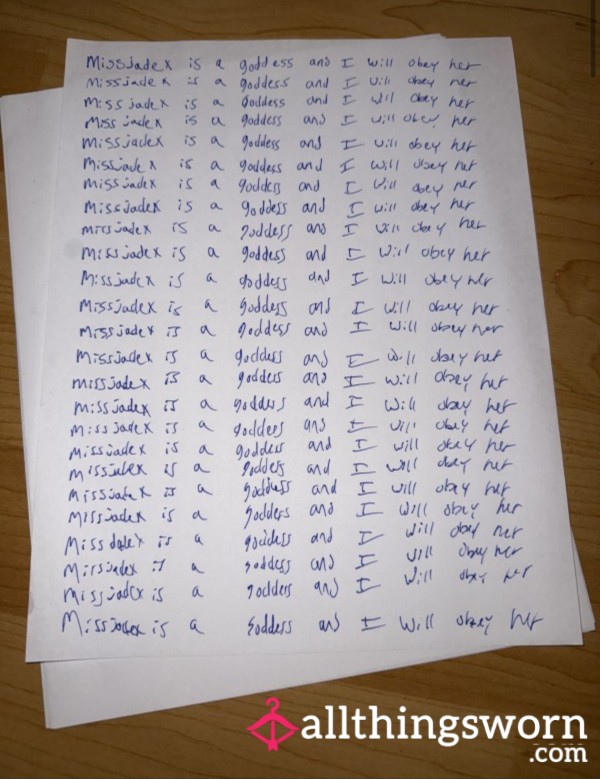 Missjadex is a goddess and I will obey her
Missjadex is a goddess and I will obey her
Missjadex is a goddess and I will obey her
Missjadex is a goddess and I will obey her
Missjadex is a goddess and I will obey her
Missjadex is a goddess and I will obey her
Missjadex is a goddess and I will obey her
Missjadex is a goddess and I will obey her
Missjadex is a goddess and I will obey her
Missjadex is a goddess and I will obey her
Missjadex is a goddess and I will obey her
Missjadex is a goddess and I will obey her
Missjadex is a goddess and I will obey her
Missjadex is a goddess and I will obey her
Missjadex is a goddess and I will obey her
Missjadex is a goddess and I will obey her
Missjadex is a goddess and I will obey her
Missjadex is a goddess and I will obey her
Missjadex is a goddess and I will obey her
Missjadex is a goddess and I will obey her
Missjadex is a goddess and I will obey her
Missjadex is a goddess and I will obey her
Missjadex is a goddess and I will obey her
Missjadex is a goddess and I will obey her
Missjadex is a goddess and I will obey her
allthingsworn
.com